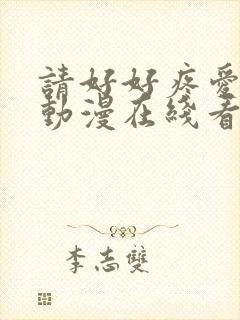 請好好疼愛
動漫在綫看
李志雙